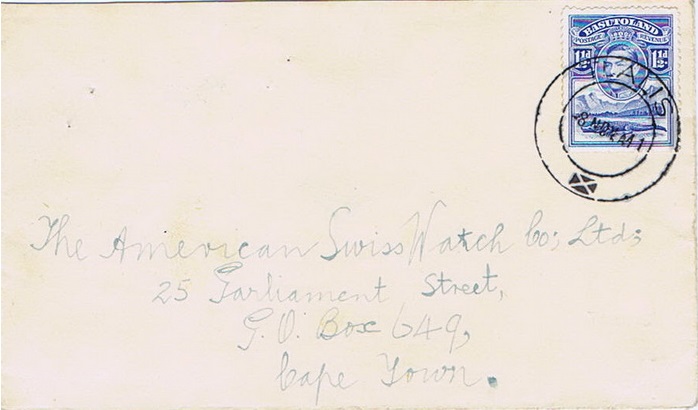 BASUTOLAND
POSTAGE REVENUE
1½d 1½d
The American Swiss Watch Co; Ltd;
25 Parliament Street,
G.O. Box 649,
Cape Town.